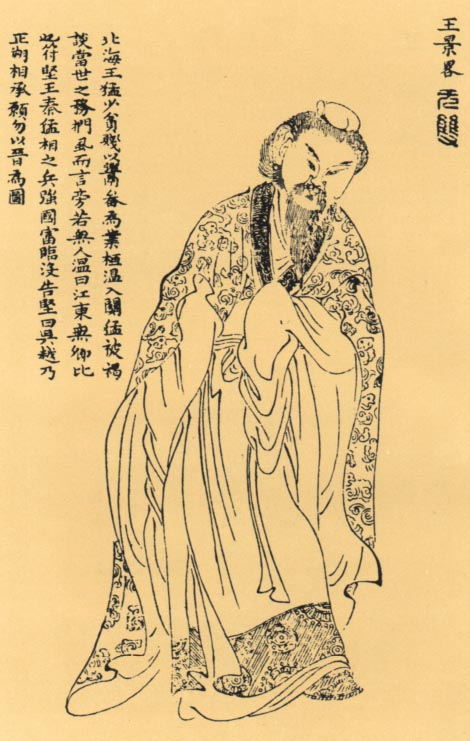 王景畧 无雙
北海王猛少貧賤以鬻畚為業桓溫入關猛被褐
談當世之務捫風而言旁若無人溫曰江東無卿比
也符堅王秦猛相之兵強國富臨沒告堅曰吳越乃
正朔相承願勿以晉為圖